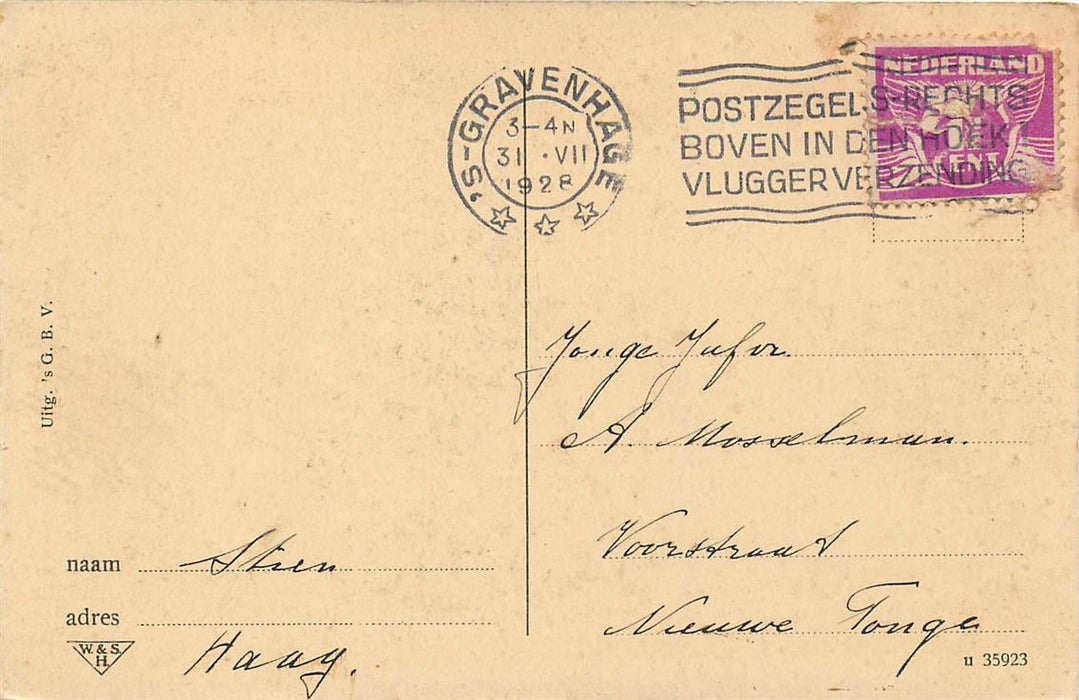 'S-GRAVENHAGE
3-4N
31 · VII
1928
POSTZEGELS-RECHTS
BOVEN IN DEN HOEK
VLUGGER VERZENDING
NEDERLAND
CENT
Jonge Jufvr.
A. Mosselman.
Voorstraat
Nieuwe Tonge
Uitg. 's G. B. V.
naam Stien
adres
Haag.
W. & S.
H.
u 35923